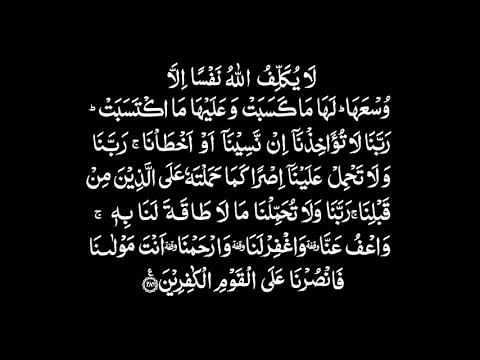 لَا يُكَلِّفُ اللّٰهُ نَفْسًا اِلَّا
وُسْعَهَاؕ لَهَا مَا كَسَبَتْ وَ عَلَيْهَا مَا اكْتَسَبَتْؕ
رَبَّنَا لَا تُؤَاخِذْنَاۤ اِنْ نَّسِيْنَاۤ اَوْ اَخْطَاْنَاۚ رَبَّنَا
وَلَا تَحْمِلْ عَلَيْنَاۤ اِصْرًا كَمَا حَمَلْتَهٗ عَلَى الَّذِيْنَ مِنْ
قَبْلِنَاۚ رَبَّنَا وَلَا تُحَمِّلْنَا مَا لَا طَاقَةَ لَنَا بِهٖۚ
وَاعْفُ عَنَّاوقفة وَاغْفِرْ لَنَاوقفة وَارْحَمْنَاوقفة اَنْتَ مَوْلٰىنَا
فَانْصُرْنَا عَلَى الْقَوْمِ الْكٰفِرِيْنَ۠ ۝۲۸۶